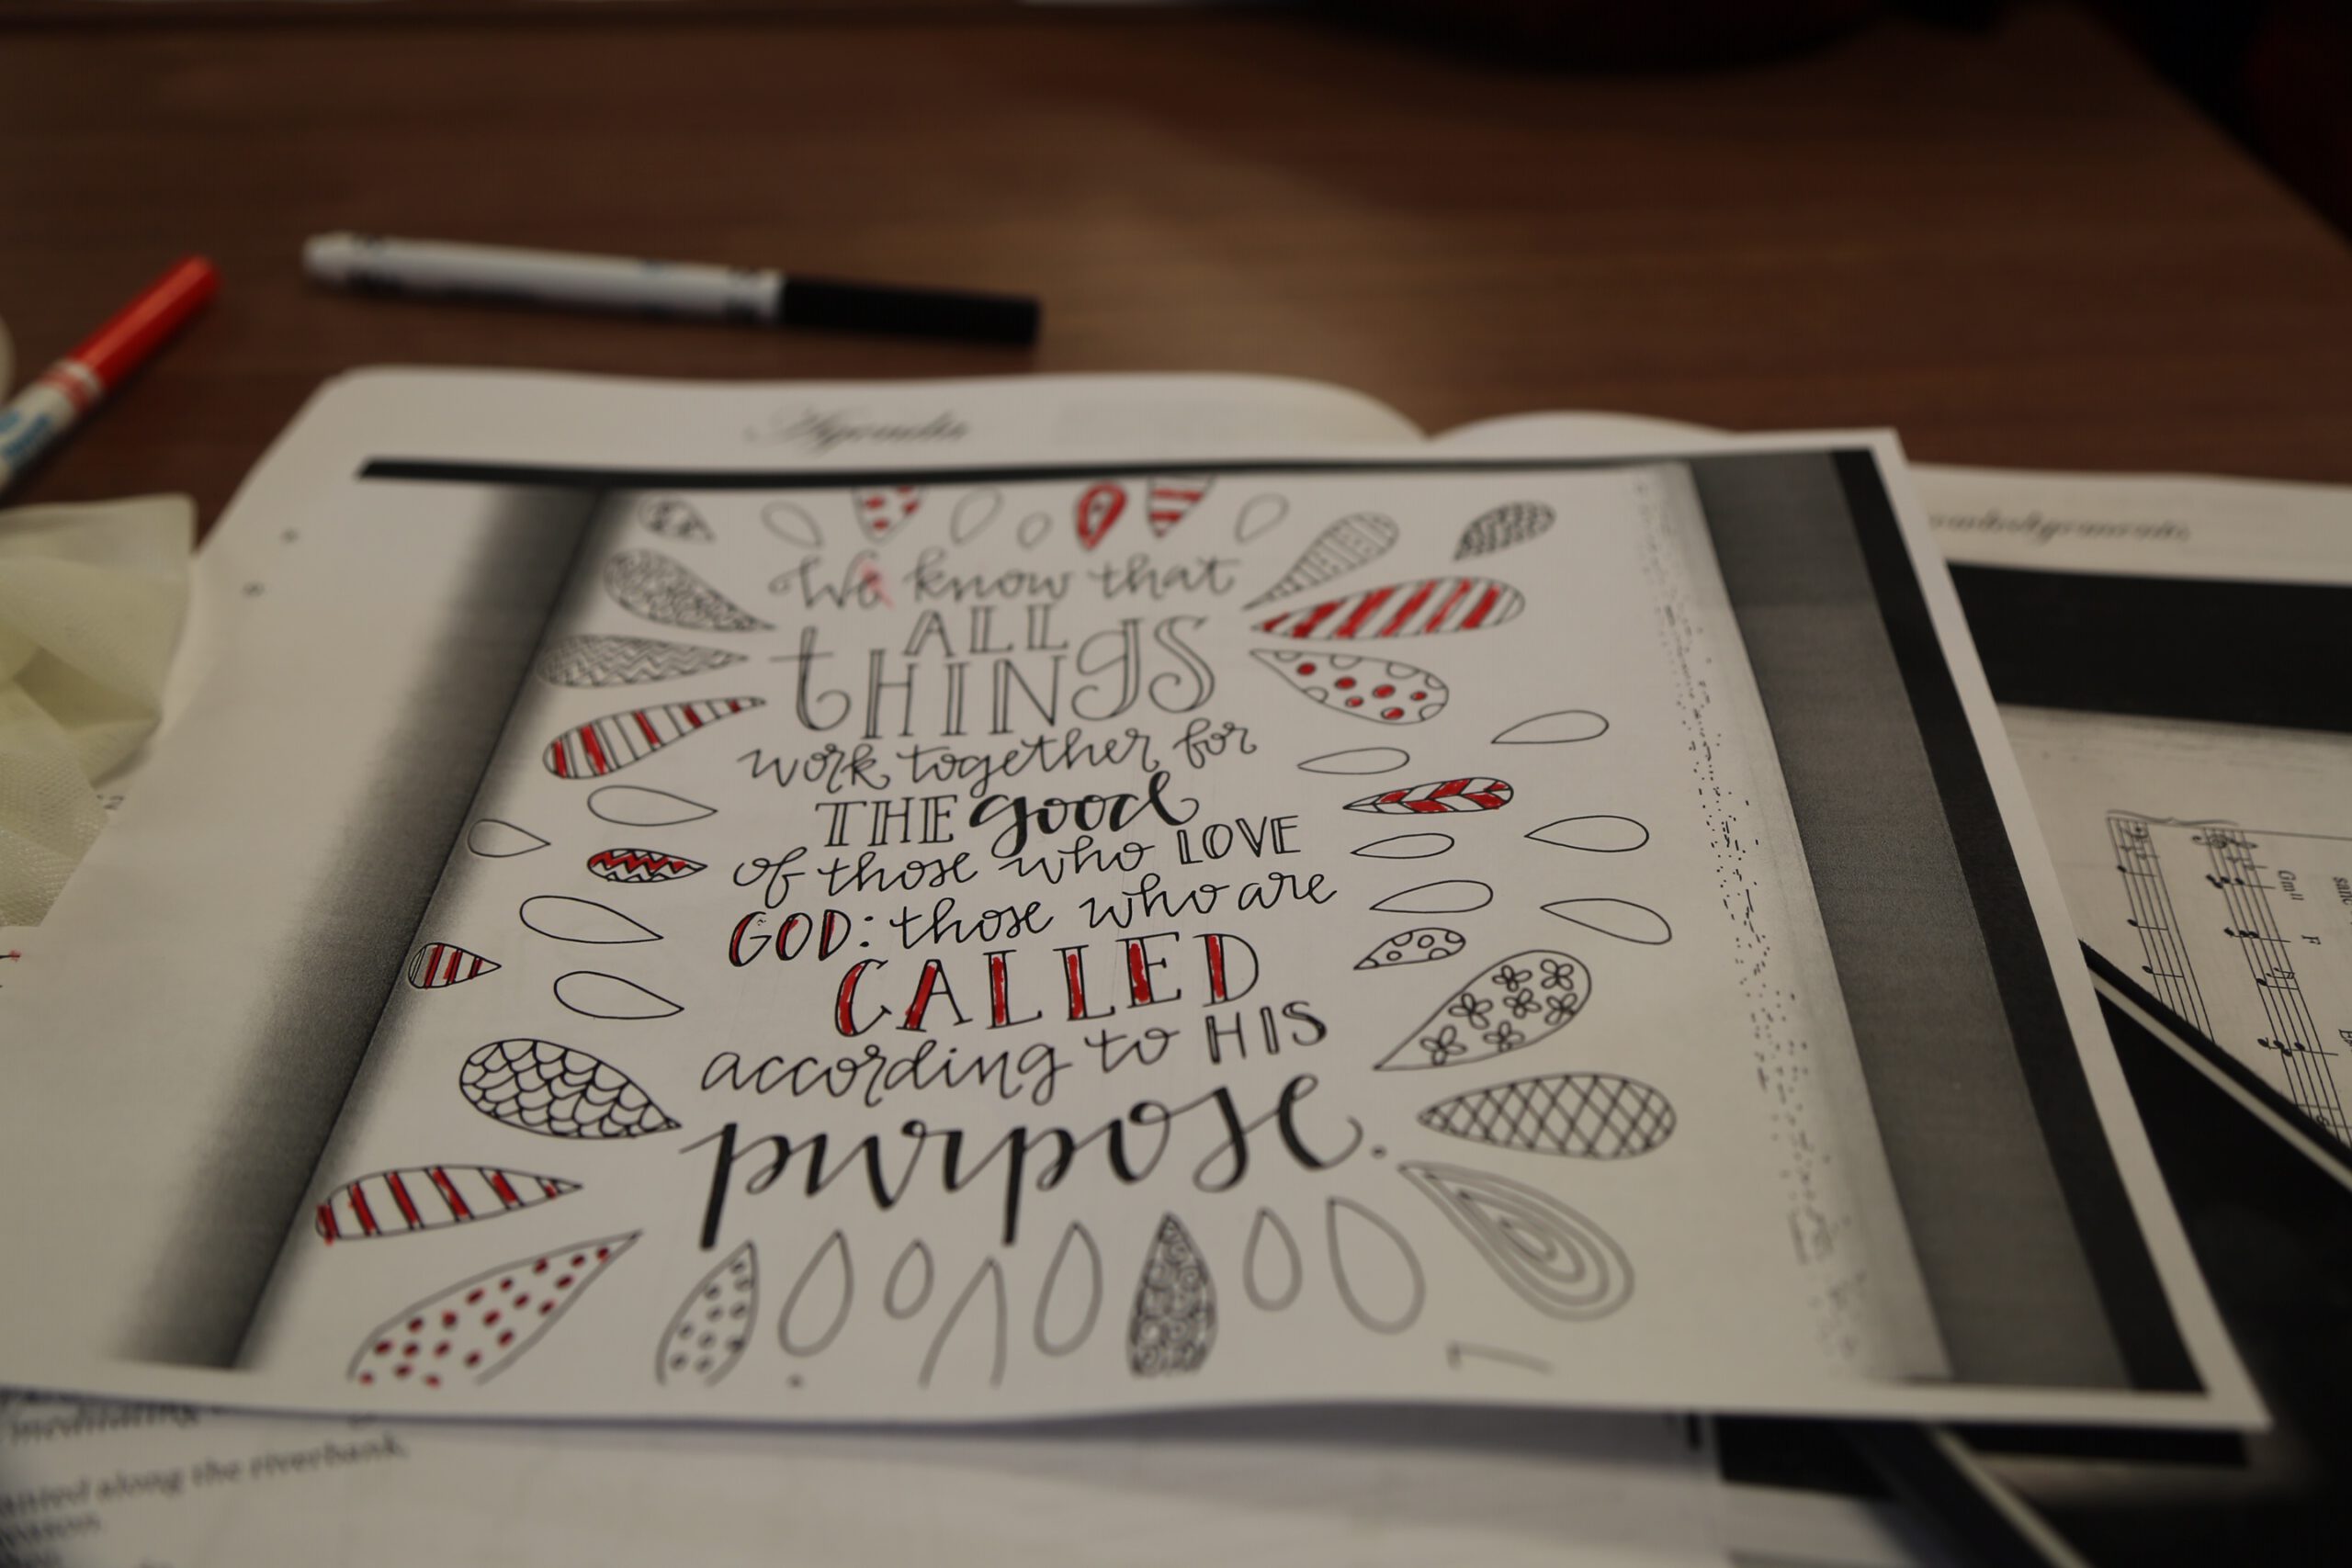 Agenda
We know that
ALL
tHINgS
work together for
THE good
of those who LOVE
GOD: those who are
CALLED
according to HIS
purpose.
Gm11
F
meditating
along the riverbank,